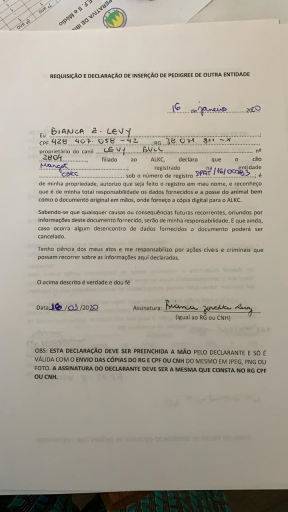 REQUISIÇÃO E DECLARAÇÃO DE INSERÇÃO DE PEDIGREE DE OUTRA ENTIDADE
16 de janeiro 2020
Eu BIANCA Z. LEVY
CPF 428 407 058 -42 RG
proprietário do canil LEVY BULL nº
2804 filiado ao ALKC, declaro que o cão
registrado na entidade
CBKC sob o número de registro ; é
de minha propriedade, autorizo que seja feito o registro em meu nome, e reconheço
que é de minha total responsabilidade os dados fornecidos e a posse do animal bem
como o documento original em mãos, onde forneço a cópia digital para o ALKC.
Sabendo-se que quaisquer causas ou consequências futuras recorrentes, oriundos por
informações deste documento fornecido, serão de minha responsabilidade. E que ainda,
caso ocorra algum desencontro de dados fornecidos o documento poderá ser
cancelado.
Tenho ciência dos meus atos e me responsabilizo por ações cíveis e criminais que
possam recorrer sobre as informações aqui declaradas.
O acima descrito é verdade e dou fé
Data: 16/01/2020 Assinatura: Bianca
(Igual ao RG ou CNH)
OBS: ESTA DECLARAÇÃO DEVE SER PREENCHIDA A MÃO PELO DECLARANTE E SÓ É
VÁLIDA COM O ENVIO DAS CÓPIAS DO RG E CPF OU CNH DO MESMO EM JPEG, PNG OU
FOTO. A ASSINATURA DO DECLARANTE DEVE SER A MESMA QUE CONSTA NO RG CPF
OU CNH.